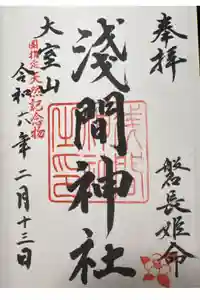 奉拝
磐長姫命
浅間神社
大室山
国指定天然記念物
令和六年二月十三日